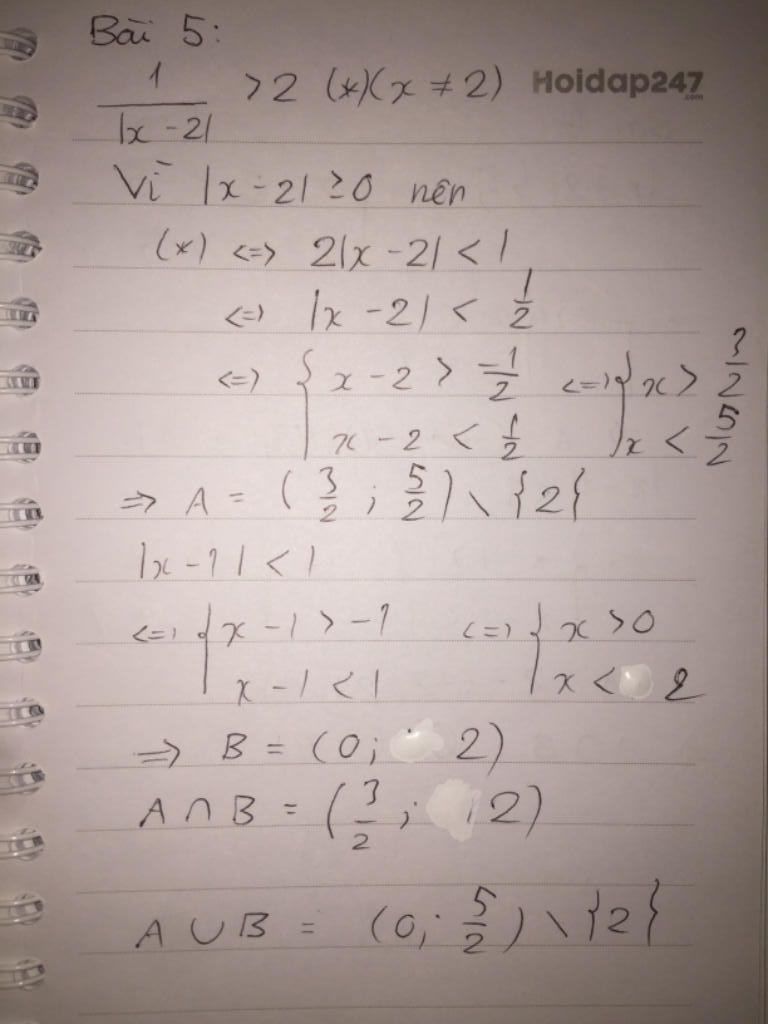 Bài 5:
1/|x - 2| > 2 (*)(x ≠ 2) Hoidap247.com
Vì |x - 2| ≥ 0 nên
(*) <=> 2|x - 2| < 1
<=> |x - 2| < 1/2
<=> { x - 2 > -1/2 <=> { x > 3/2
x - 2 < 1/2 x < 5/2
=> A = (3/2 ; 5/2) \ {2}
|x - 1| < 1
<=> { x - 1 > -1 <=> { x > 0
x - 1 < 1 x < 2
=> B = (0; 2)
A ∩ B = (3/2 ; 2)
A ∪ B = (0; 5/2) \ {2}